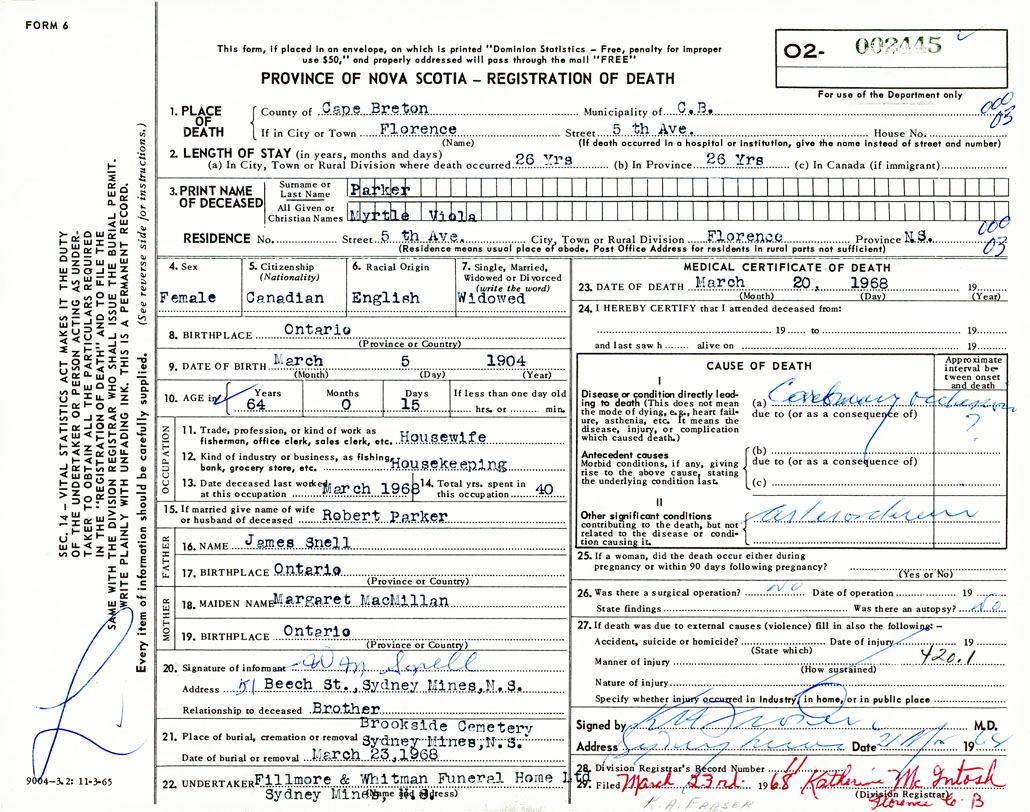 FORM 6
This form, if placed in an envelope, on which is printed "Dominion Statistics – Free, penalty for improper
use $50," and properly addressed will pass through the mail "FREE"
PROVINCE OF NOVA SCOTIA – REGISTRATION OF DEATH
O2- 002445
For use of the Department only
1. PLACE OF DEATH County of Cape Breton Municipality of C.B. 000 03
If in City or Town Florence Street 5 th Ave. House No.
(Name) (If death occurred in a hospital or institution, give the name instead of street and number)
2. LENGTH OF STAY (in years, months and days)
(a) In City, Town or Rural Division where death occurred 26 Yrs (b) In Province 26 Yrs (c) In Canada (if immigrant)
3. PRINT NAME OF DECEASED Surname or Last Name Parker
All Given or Christian Names Myrtle Viola
RESIDENCE No. Street 5 th Ave. City, Town or Rural Division Florence Province N.S. 000 03
(Residence means usual place of abode. Post Office Address for residents in rural parts not sufficient)
4. Sex Female
5. Citizenship (Nationality) Canadian
6. Racial Origin English
7. Single, Married, Widowed or Divorced (write the word) Widowed
8. BIRTHPLACE Ontario
(Province or Country)
9. DATE OF BIRTH March 5 1904
(Month) (Day) (Year)
10. AGE in Years 64 Months 0 Days 15 If less than one day old hrs. or min.
OCCUPATION
11. Trade, profession, or kind of work as
fisherman, office clerk, sales clerk, etc. Housewife
12. Kind of industry or business, as fishing,
bank, grocery store, etc. Housekeeping
13. Date deceased last worked at this occupation March 1968
14. Total yrs. spent in this occupation 40
15. If married give name of wife
or husband of deceased Robert Parker
FATHER
16. NAME James Snell
17. BIRTHPLACE Ontario
(Province or Country)
MOTHER
18. MAIDEN NAME Margaret MacMillan
19. BIRTHPLACE Ontario
(Province or Country)
20. Signature of informant Wm Snell
Address 51 Beech St., Sydney Mines, N.S.
Relationship to deceased Brother
21. Place of burial, cremation or removal Brookside Cemetery
Sydney Mines, N.S.
Date of burial or removal March 23, 1968
22. UNDERTAKER Fillmore & Whitman Funeral Home Ltd
Sydney Mines, N.S.
(Name and address)
MEDICAL CERTIFICATE OF DEATH
23. DATE OF DEATH March 20, 1968 19
(Month) (Day) (Year)
24. I HEREBY CERTIFY that I attended deceased from:
19 to 19
and last saw h alive on 19
CAUSE OF DEATH
Approximate interval between onset and death
I
Disease or condition directly leading
to death (This does not mean
the mode of dying, e.g., heart failure,
asthenia, etc. It means the
disease, injury, or complication
which caused death.)
(a) Coronary occlusion ?
due to (or as a consequence of)
Antecedent causes
Morbid conditions, if any, giving
rise to the above cause, stating
the underlying condition last.
(b)
due to (or as a consequence of)
(c)
II
Other significant conditions
contributing to the death, but not
related to the disease or condition
causing it.
25. If a woman, did the death occur either during
pregnancy or within 90 days following pregnancy?
(Yes or No)
26. Was there a surgical operation? no Date of operation 19
State findings Was there an autopsy? No
27. If death was due to external causes (violence) fill in also the following: –
Accident, suicide or homicide? Date of injury 19
(State which)
Manner of injury 420.1
(How sustained)
Nature of injury
Specify whether injury occurred in industry, in home, or in public place
Signed by M.D.
Address Sydney Mines Date 21 Mar 1968
28. Division Registrar's Record Number 11
29. Filed March 23rd 1968 Katherine McIntosh
(Division Registrar)
Florence C B
K.A. FRASER
SEC. 14 – VITAL STATISTICS ACT MAKES IT THE DUTY
OF THE UNDERTAKER OR PERSON ACTING AS UNDERTAKER
TO OBTAIN ALL THE PARTICULARS REQUIRED
IN THE "REGISTRATION OF DEATH" AND TO FILE THE
SAME WITH THE DIVISION REGISTRAR WHO SHALL ISSUE THE BURIAL PERMIT.
WRITE PLAINLY WITH UNFADING INK. THIS IS A PERMANENT RECORD.
Every item of information should be carefully supplied. (See reverse side for instructions.)
9004–3.2: 11-3-65